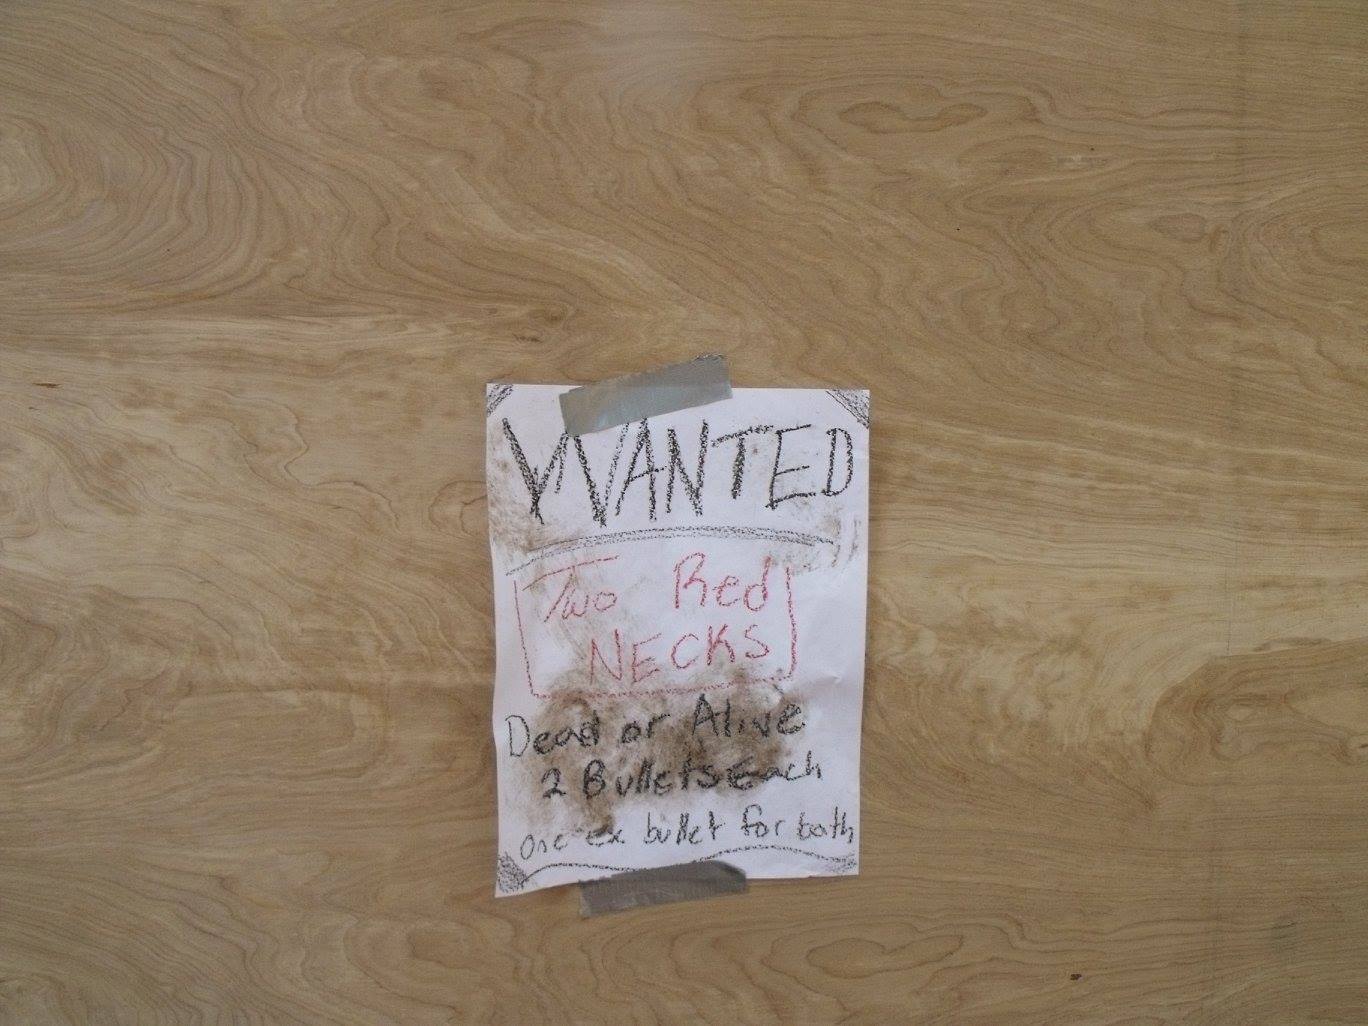 WANTED
Two Red
NECKS
Dead or Alive
2 Bullets Each
one ex bullet for both